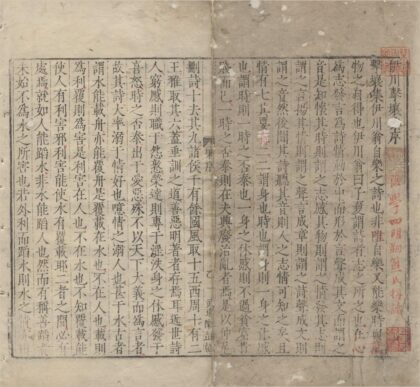 伊川擊壤集序
擊壤集伊川翁自樂之詩也非唯自樂又能樂時與萬
物之自得也伊川翁曰子夏謂詩者志之所之也在心
為志發言為詩情動於中而形於言聲成其文而謂之
音是知懷其時則謂之志感其物則謂之情發其志則
謂之言揚其情則謂之聲言成章則謂之詩聲成文則
謂之音然後聞其詩聽其音則人之志情可知之矣且
情有七其要在二二謂身也時也謂身則一身之休慼
也謂時則一時之否泰也一身之休慼則不過貧富貴
賤而已一時之否泰則在夫興廢治亂者焉是以仲尼
刪詩十去其九諸侯千有餘國風取十五西周十有二
王雅取其六蓋垂訓之道善惡明著者存焉耳近世詩
人窮慼則職于怨憝榮達則專于淫泆身之休慼發于
喜怒時之否泰出于愛惡殊不以天下大義而為言者
故其詩大率溺于情好也噫情之溺人也甚于水古者
謂水能載舟亦能覆舟是覆載在水也不在人也載則
為利覆則為害是利害在人也不在水也不知覆載能
使人有利害邪利害能使水有覆載邪二者之間必有
處焉就如人能蹈水非水能蹈人也然而有稱善蹈者
未始不為水之所害也若外利而蹈水則水之